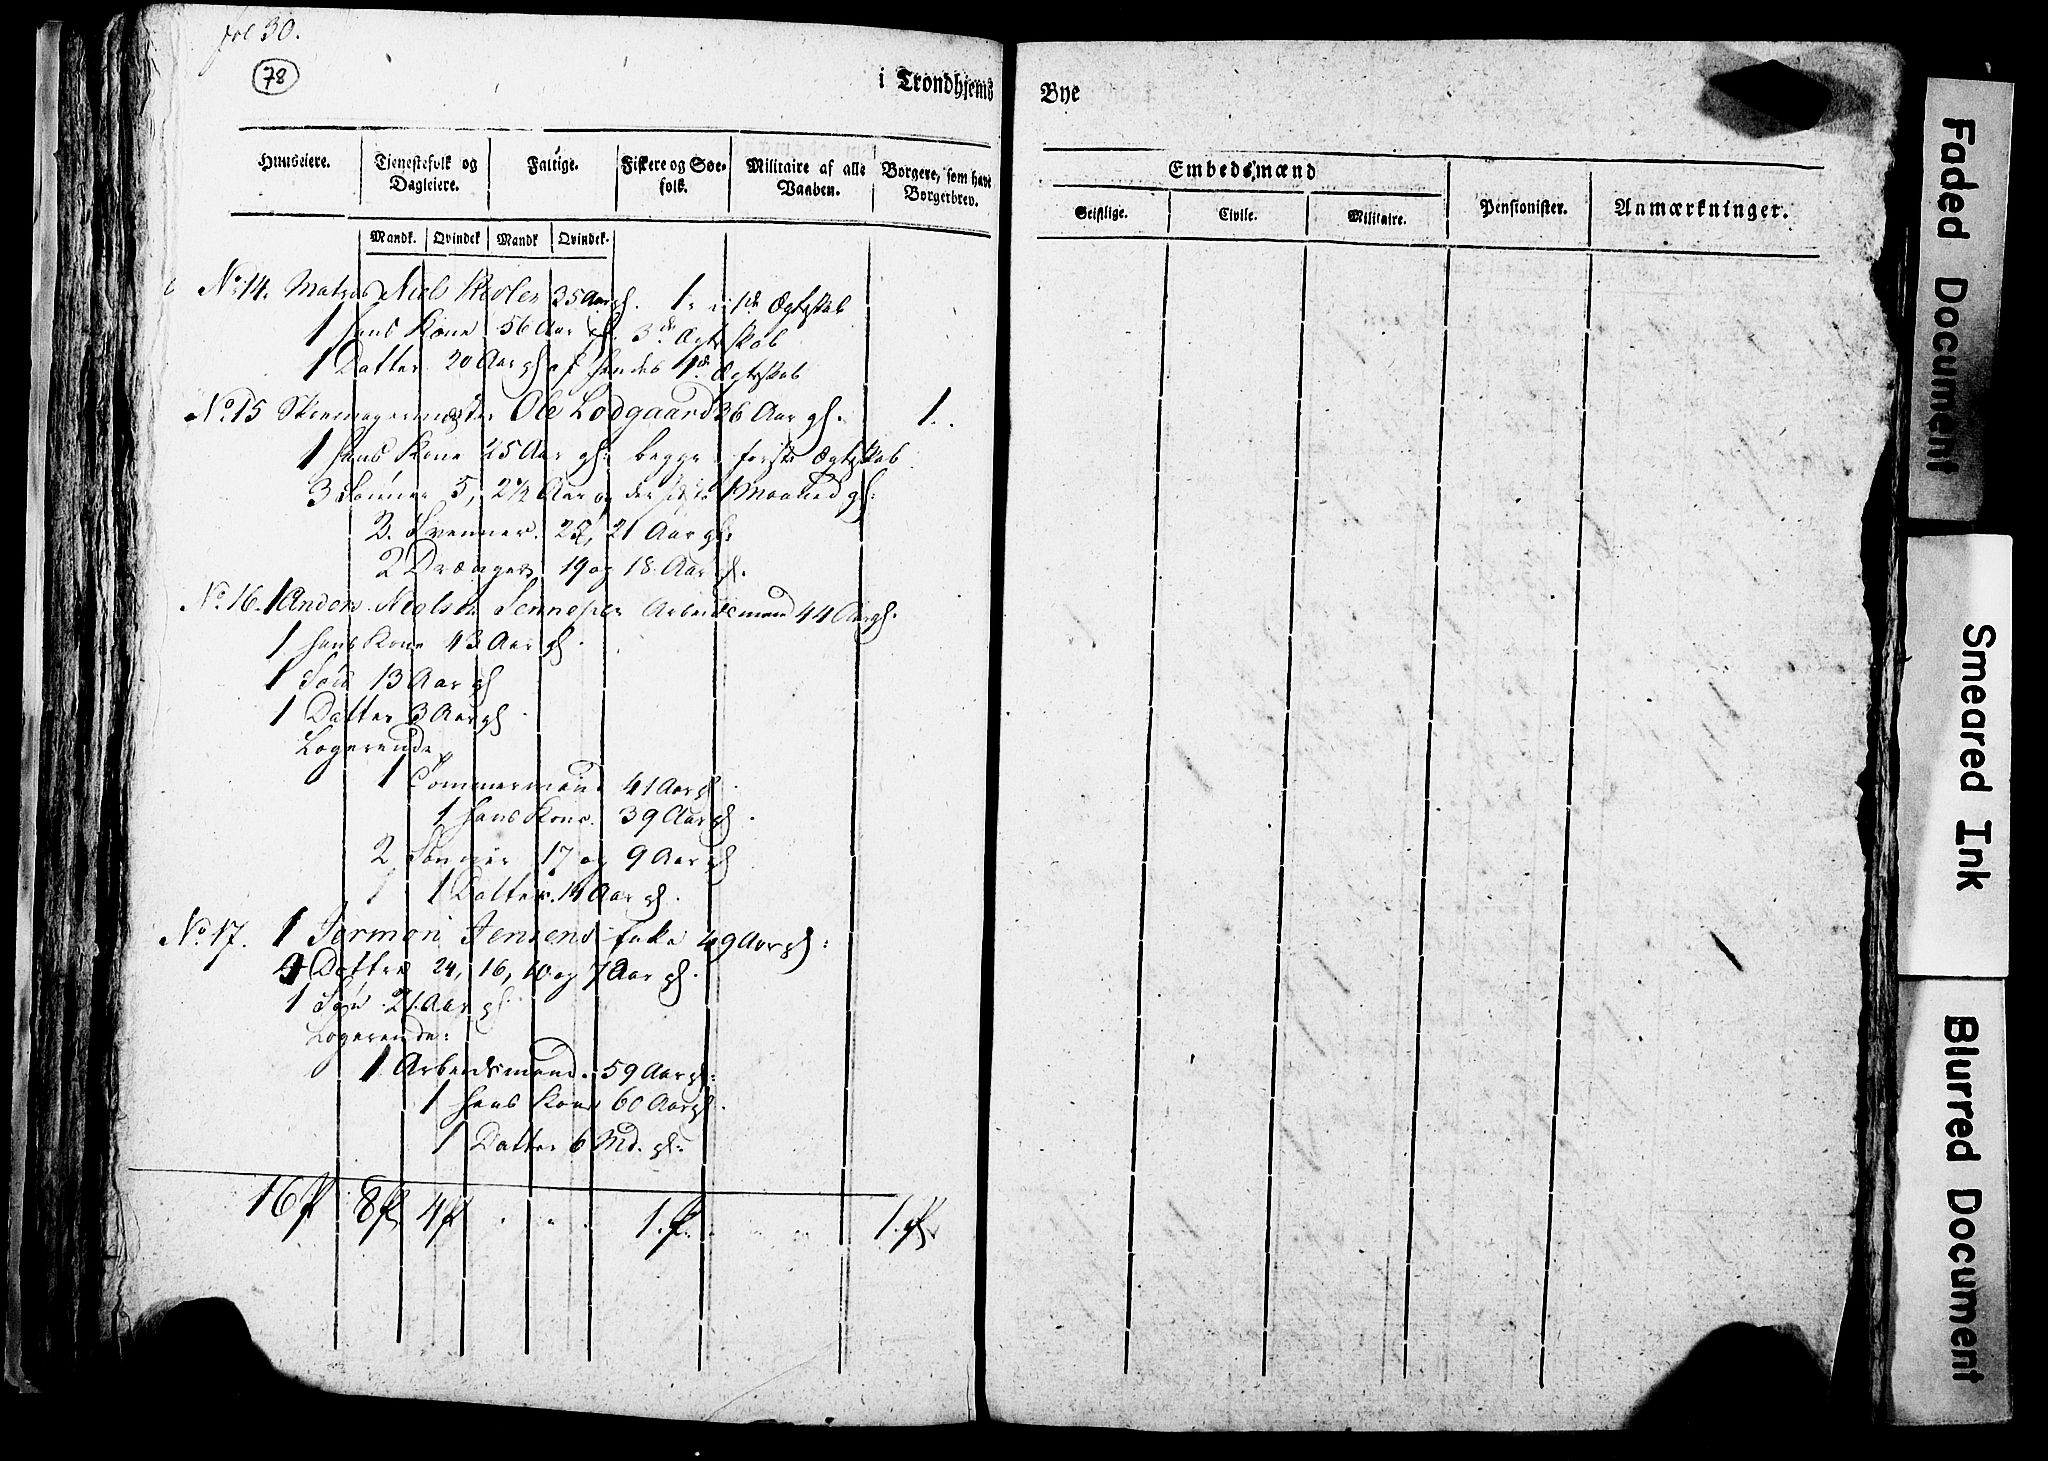 fol 30.
78
i Trondhjems Bye
Huuseiere. Tjenestefolk og Dagleiere. Fattige. Fiskere og Søefolk. Militaire af alle Vaaben. Borgere, som have Borgerbrev.
Mandk. Qvindek Mandk Qvindek.
Embedsmænd Pensionister. Anmærkninger.
Geistlige. Civile. Militaire.
No. 14. Matros Niels 35 Aar gl. 1. i 1de Ægteskab
1 hans Kone 56 Aar gl. 3de Ægteskab
1 Datter 20 Aar gl af hendes 1de Ægteskab
No. 15 Skomagermester Ole Lodgaard 36 Aar gl. 1.
1 hans Kone 25 Aar gl: begge i første Ægteskab
3 Sønner 5, 2½ Aar og den sidste 1 Maaned gl:
2. Svenner. 23, 21 Aar gl:
2 Drænger 19 og 18 Aar gl.
No. 16. 1 Anders Nielsen Arbeidsmand 44 Aar gl.
1 hans Kone 43 Aar gl.
1 Søn 13 Aar gl
1 Datter 3 Aar gl.
Logerende
1 Tømmermand 41 Aar gl.
1 hans Kone. 39 Aar gl.
2 Sønner 17 og 9 Aar gl
1 Datter. 14 Aar gl.
No. 17. 1 Jermon Jensens Enke 49 Aar gl:
4 Døttre 24, 16, 10 og 7 Aar gl.
1 Søn 21. Aar gl.
Logerende:
1 Arbeidsmand. 59 Aar gl:
1 hans Kone 60 Aar gl.
1 Datter 6 Md. gl:
16 8 4 1. 1.
Faded Document
Smeared Ink
Blurred Document